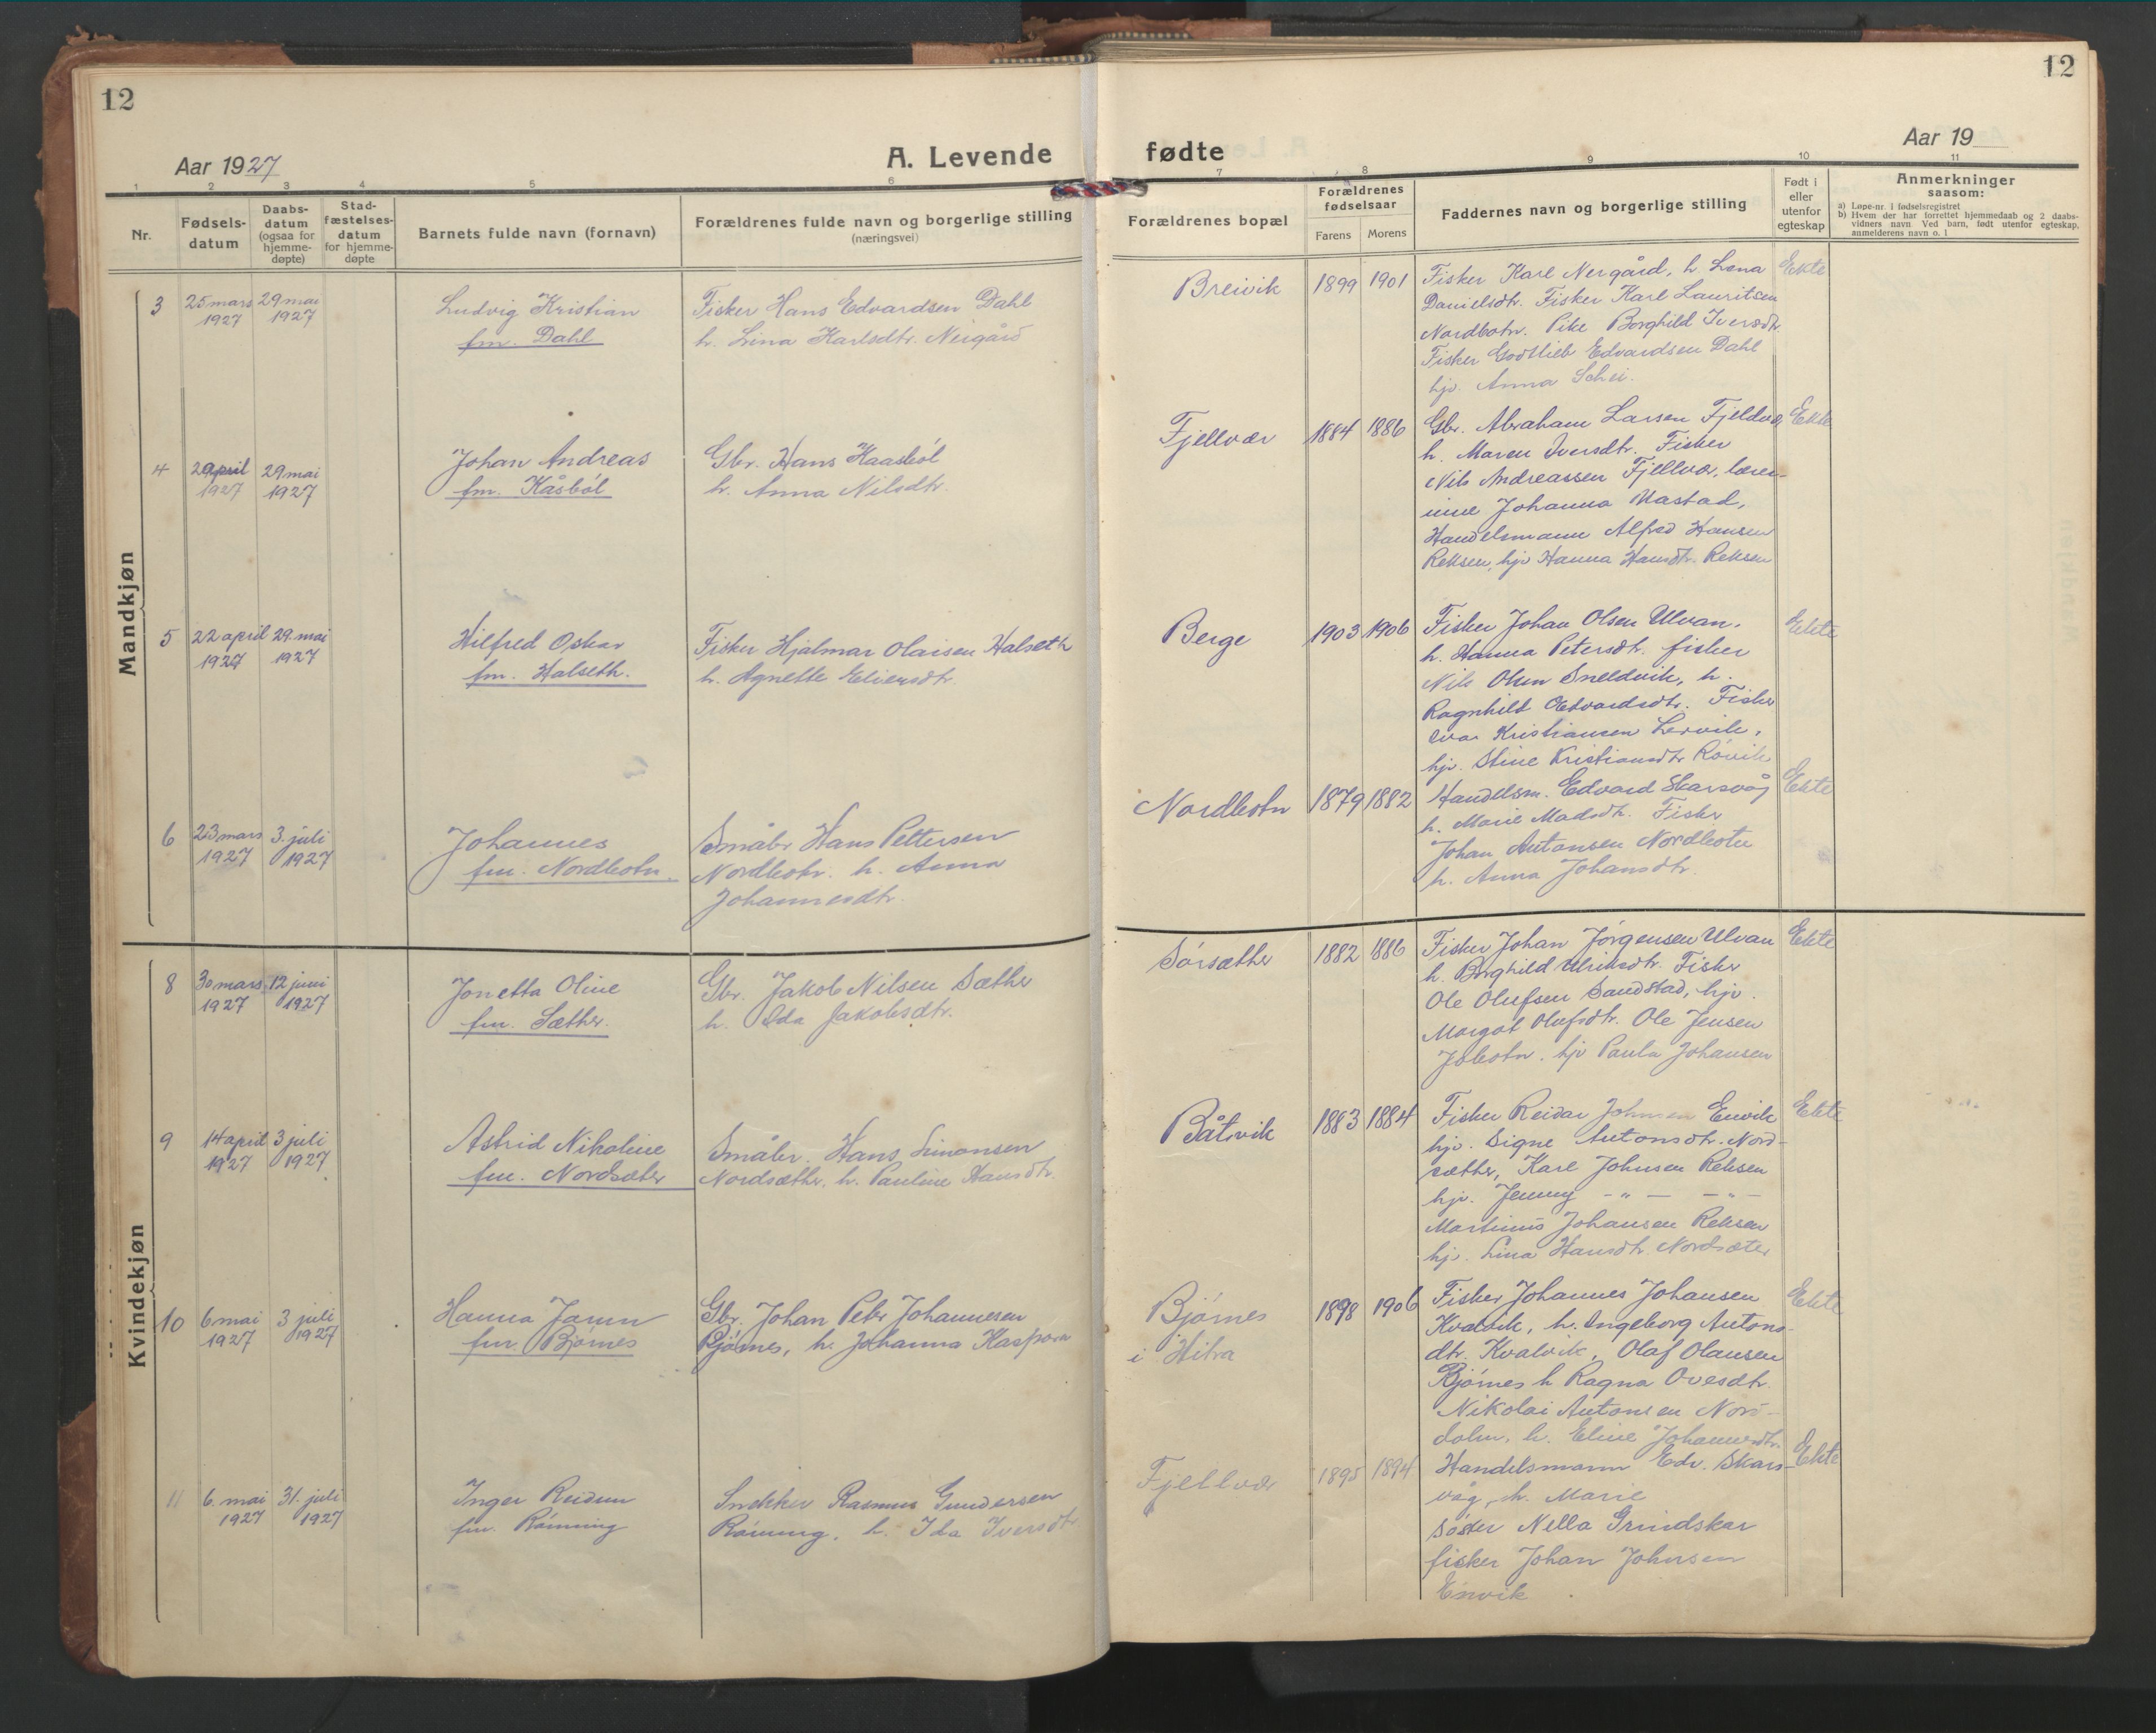 12
12
Aar 1927
A. Levende
fødte
Aar 19
1 2 3 4 5 6
7 8 9 10 11
Nr.
Fødselsdatum
Daabsdatum (ogsaa for hjemmedøpte)
Stadfæstelsesdatum for hjemmedøpte
Barnets fulde navn (fornavn)
Forældrenes fulde navn og borgerlige stilling
(næringsvei)
Forældrenes bopæl
Forældrenes fødselsaar
Farens Morens
Faddernes navn og borgerlige stilling
Født i eller utenfor egteskap
Anmerkninger
saasom:
a) Løpe-nr. i fødselsregistret
b) Hvem der har forrettet hjemmedaab og 2 daabsvidners navn. Ved barn, født utenfor egteskap, anmelderens navn o. l
Mandkjøn
3 25 mars 1927 29 mai 1927
Ludvig Kristian
fm. Dahl
Fisker Hans Edvardsen Dahl
h. Lina Karlsdtr. Neigård
Breivik 1899 1901
Fisker Karl Nergård, h. Lena
Danielsdtr. Fisker Karl Lauritsen
Nordbotn. Pike Borghild Iversdtr.
Fisker Godtlieb Edvardsen Dahl
hjv. Anna Schei.
Ekte
4 april 1927 29 mai 1927
Johan Andreas
fm. Kåsból
Gbr. Hans Kaasból
h. Anna Nilsdtr.
Fjellvær 1884 1886
Gbr. Abraham Larsen Fjeldvær
h. Maren Iversdtr. Fisker
Nils Andreassen Fjellvær, lærer-
inne Johanna Mastad,
Handelsmann Alfred Hansen
Reksen, hjv Hanna Hansdtr. Reksen
Ekte
5 22 april 1927 29. mai 1927
Hilfred Oskar
fm. Halseth.
Fisker Hjalmar Olaisen Halseth
h. Agnette Eliersdtr.
Berge 1903 1906
Fisker Johan Olsen Ulvan.
h. Hanna Petersdtr. fisker
Nils Olsen Sneldvik, h.
Ragnhild Edvardsdtr. Fisker
Ivar Kristiansen Lervik,
hjv. Stine Kristiansdtr Róvik
Ekte
6 23 mars 1927 3. juli 1927
Johannes
fm. Nordbotn.
Småbr Hans Pettersen
Nordbotn. h. Anna
Johannesdtr.
Nordbotn 1879 1882
Handelsm. Edvard Skarsvåg
h. Marie Madsdtr. Fisker
Johan Antonsen Nordbotn
h. Anna Johansdtr.
Ekte
Kvindekjøn
8 30 mars 1927 12 juni 1927
Jonetta Oline
fm. Sæther.
Gbr. Jakob Nilsen Sæther
h. Ida Jakobsdtr.
Sórsæther 1882 1886
Fisker Johan Jórgensen Ulvan
h. Borghild Ulriksdtr. Fisker
Ole Olufsen Sandstad, hjv.
Margot Olufsdtr. Ole Jensen
Jóbotn. hjv Paula Johansen
Ekte
9 14 april 1927 3 juli 1927
Astrid Nikoline
fm. Nordsæter
Småbr. Hans Simonsen
Nordsæther, h. Pauline Hansdtr.
Båtvik 1883 1884
Fisker Reidar Johnsen Envik
hjv. Signe Antonsdtr. Nord-
sæther, Karl Johnsen Reksen
hjv. Jenny - " - - " -
Martinus Johansen Reksen
hjv. Lina Hansdtr. Nordsæter
Ekte
10 6 mai 1927 3 juli 1927
Hanna
fm. Bjórnes
Gbr. Johan Peter Johannesen
Bjórnes, h. Johanna
Bjórnes
i Hitra 1898 1906
Fisker Johannes Johansen
Kvalvik, h. Ingeborg Antons-
dtr. Kvalvik, Olaf Olausen
Bjórnes h Ragna Ovesdtr.
Nikolai Antonsen Nord-
dalm, h. Eline Johannesdtr.
Ekte
11 6. mai 1927 31. juli 1927
Inger Reidun
fm. Rónning
Snekker Rasmus Gundersen
Rónning, h. Ida Iversdtr
Fjellvær 1895 1894
Handelsmann Edv. Skars-
våg, h. Marie
sóster Nella Grindskar
fisker Johan Johnsen
Envik
Ekte